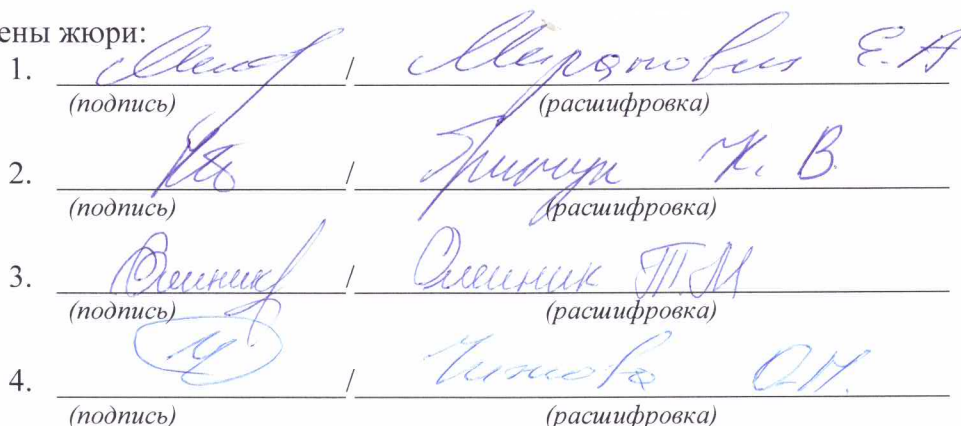 ены жюри:
1. / Миранович Е.А
(подпись) (расшифровка)
2. / Гринчук К. В.
(подпись) (расшифровка)
3. Олейник / Олейник Т.М
(подпись) (расшифровка)
4. / О.Н.
(подпись) (расшифровка)